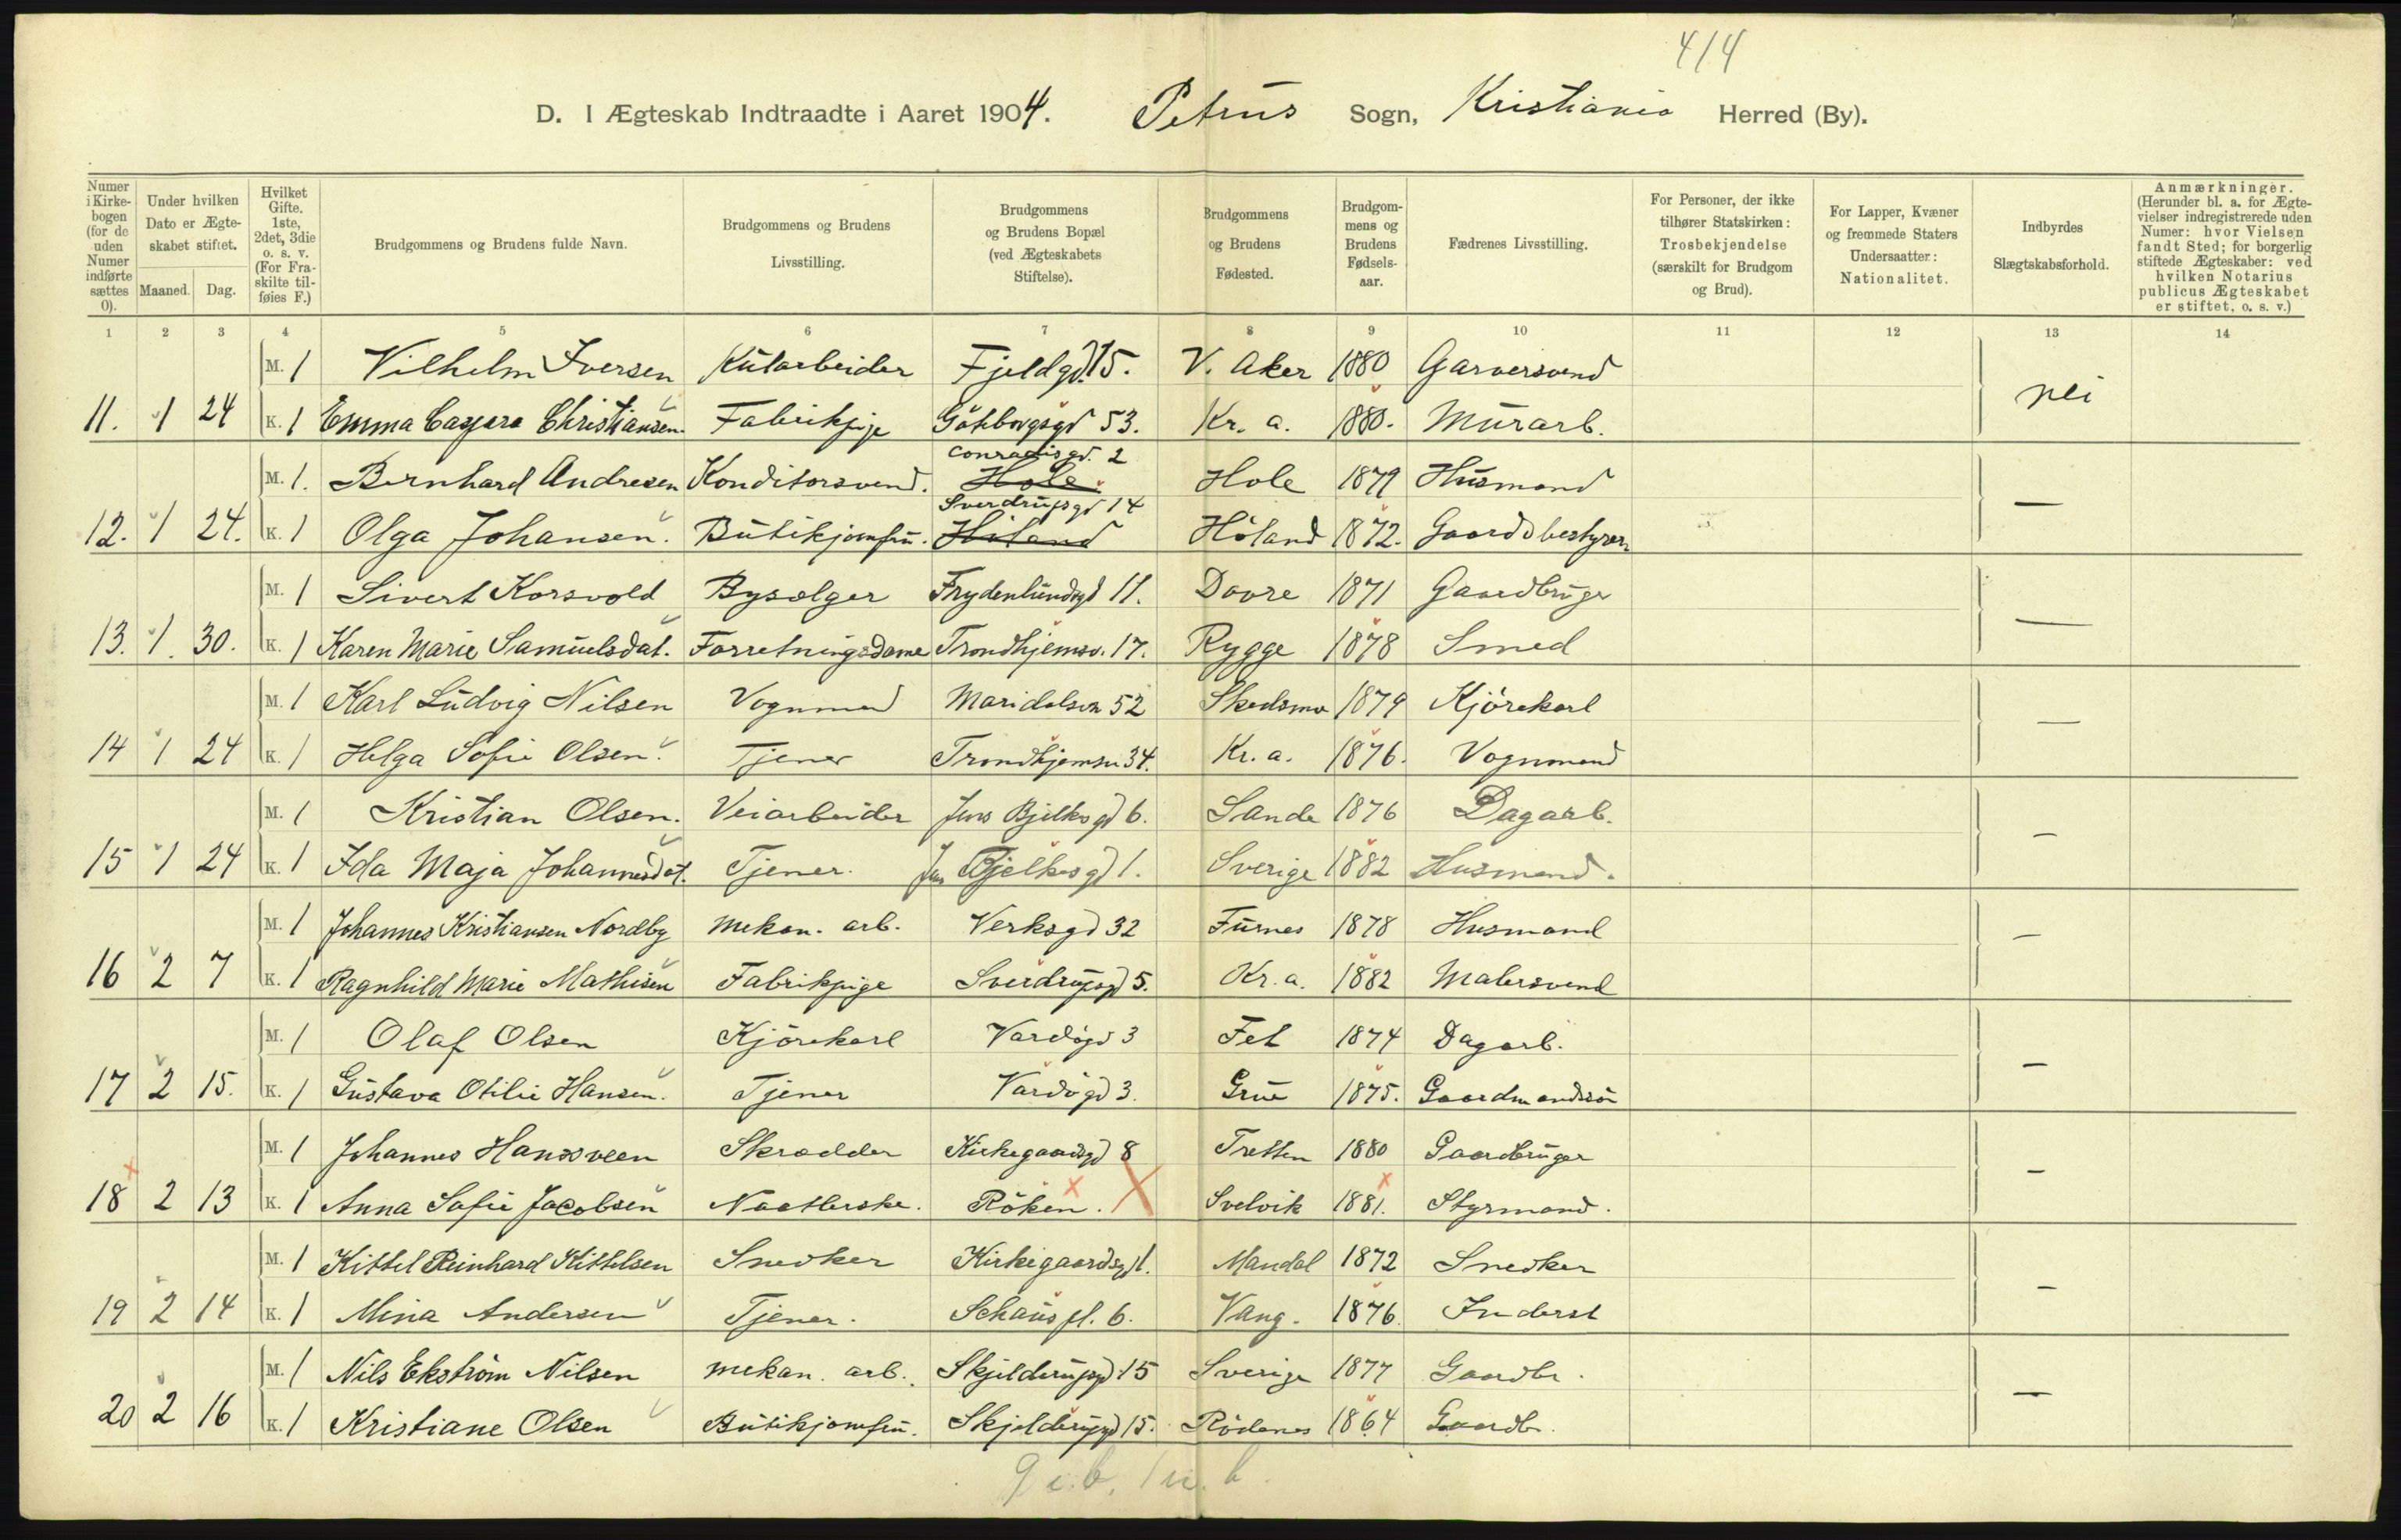 414
D. I Ægteskab Indtraadte i Aaret 1904. Petrus Sogn, Kristiania Herred (By).
Numer i Kirkebogen (for de uden Numer indførte sættes 0).
Under hvilken Dato er Ægteskabet stiftet. Maaned. Dag.
Hvilket Gifte. 1ste, 2det, 3die o. s. v. (For Fraskilte tilføies F.)
Brudgommens og Brudens fulde Navn.
Brudgommens og Brudens Livsstilling.
Brudgommens og Brudens Bopæl (ved Ægteskabets Stiftelse).
Brudgommens og Brudens Fødested.
Brudgommens og Brudens Fødselsaar.
Fædrenes Livsstilling.
For Personer, der ikke tilhører Statskirken: Trosbekjendelse (særskilt for Brudgom og Brud).
For Lapper, Kvæner og fremmede Staters Undersaatter: Nationalitet.
Indbyrdes Slægtskabsforhold.
Anmærkninger. (Herunder bl. a. for Ægtevielser indregistrerede uden Numer: hvor Vielsen fandt Sted; for borgerlig stiftede Ægteskaber: ved hvilken Notarius publicus Ægteskabet er stiftet, o. s. v.)
1 2 3 4 5 6 7 8 9 10 11 12 13 14
M. 1 Vilhelm Iversen Kularbeider Fjeldgd. 15. V. Aker 1880 Garversvend
11. 1 24 K. 1 Emma Caspara Christiansen. Fabrikpige Göteborgsgd 53. Kr. a. 1880. Murarb. nei
Conradisgd. 2
M. 1. Bernhard Andresen Konditorsvend. Hole Hole 1879 Husmand
Sverdrupsgd 14
12. 1 24. K. 1 Olga Johansen. Butikjomfru. Höland Höland 1872. Gaardsbestyrer —
M. 1 Sivert Korsvold Bysælger Frydenlundsgd 11. Dovre 1871 Gaardbruger
13. 1. 30. K. 1 Karen Marie Samuelsdat. Forretningsdame Trondhjemsv. 17. Rygge 1878 Smed —
M. 1 Karl Ludvig Nilsen Vognmand Maridalsvn 52 Skedsmo 1879 Kjörekarl
14 1 24 K. 1 Helga Sofie Olsen. Tjener Trondhjemsvn 34. Kr. a. 1876. Vognmand —
M. 1 Kristian Olsen. Veiarbeider Jens Bjelkesgd 6. Sande 1876 Dagarb.
15 1 24 K. 1 Ida Maja Johannesdat. Tjener. Jens Bjelkesgd 1. Sverige 1882 Husmand. —
M. 1 Johannes Kristiansen Nordby mekan. arb. Verksgd 32 Furnes 1878 Husmand
16 2 7 K. 1 Ragnhild Marie Mathisen Fabrikpige Sverdrupsgd 5. Kr. a. 1882 Malersvend —
M. 1 Olaf Olsen Kjörekarl Vardögd 3 Fet 1874 Dagarb.
17 2 15. K. 1 Gustava Otilie Hansen. Tjener Vardögd 3. Grue 1875. Gaardmandssön —
M. 1 Johannes Hansveen Skrædder Kirkegaardsgd 8 Tretten 1880 Gaardbruger
18 2 13 K. 1 Anna Sofie Jacobsen Naatlerske. Röken. Svelvik 1881. Styrmand. —
M. 1 Kittel Reinhard Kittelsen Snedker Kirkegaardsgd 1. Mandal 1872 Snedker
19 2 14 K. 1 Mina Andersen Tjener. Schaus pl. 6. Vang. 1876. Inderst —
M. 1 Nils Ekström Nilsen mekan. arb. Skjelderupsgd 15 Sverige 1877 Gaardbr.
20 2 16 K. 1 Kristiane Olsen Butikjomfru. Skjelderupsgd 15. Rödenes 1864 Gaardbr. —
9 i.b. 1 u. b.